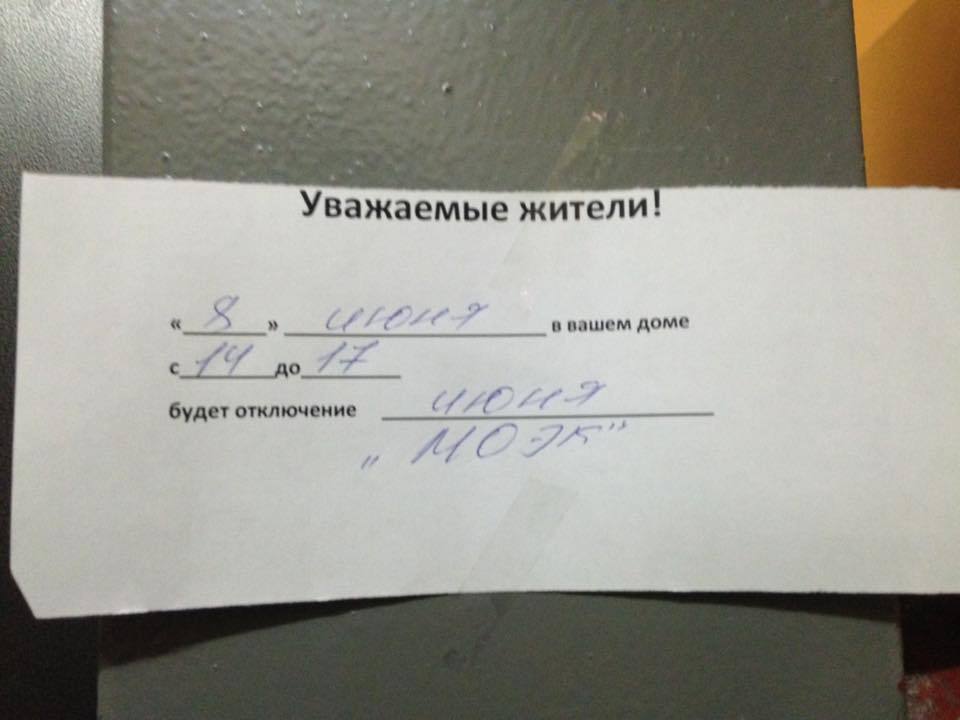 Уважаемые жители!
« 8 » июня в вашем доме
с 14 до 17
будет отключение июня
„МОЭК"